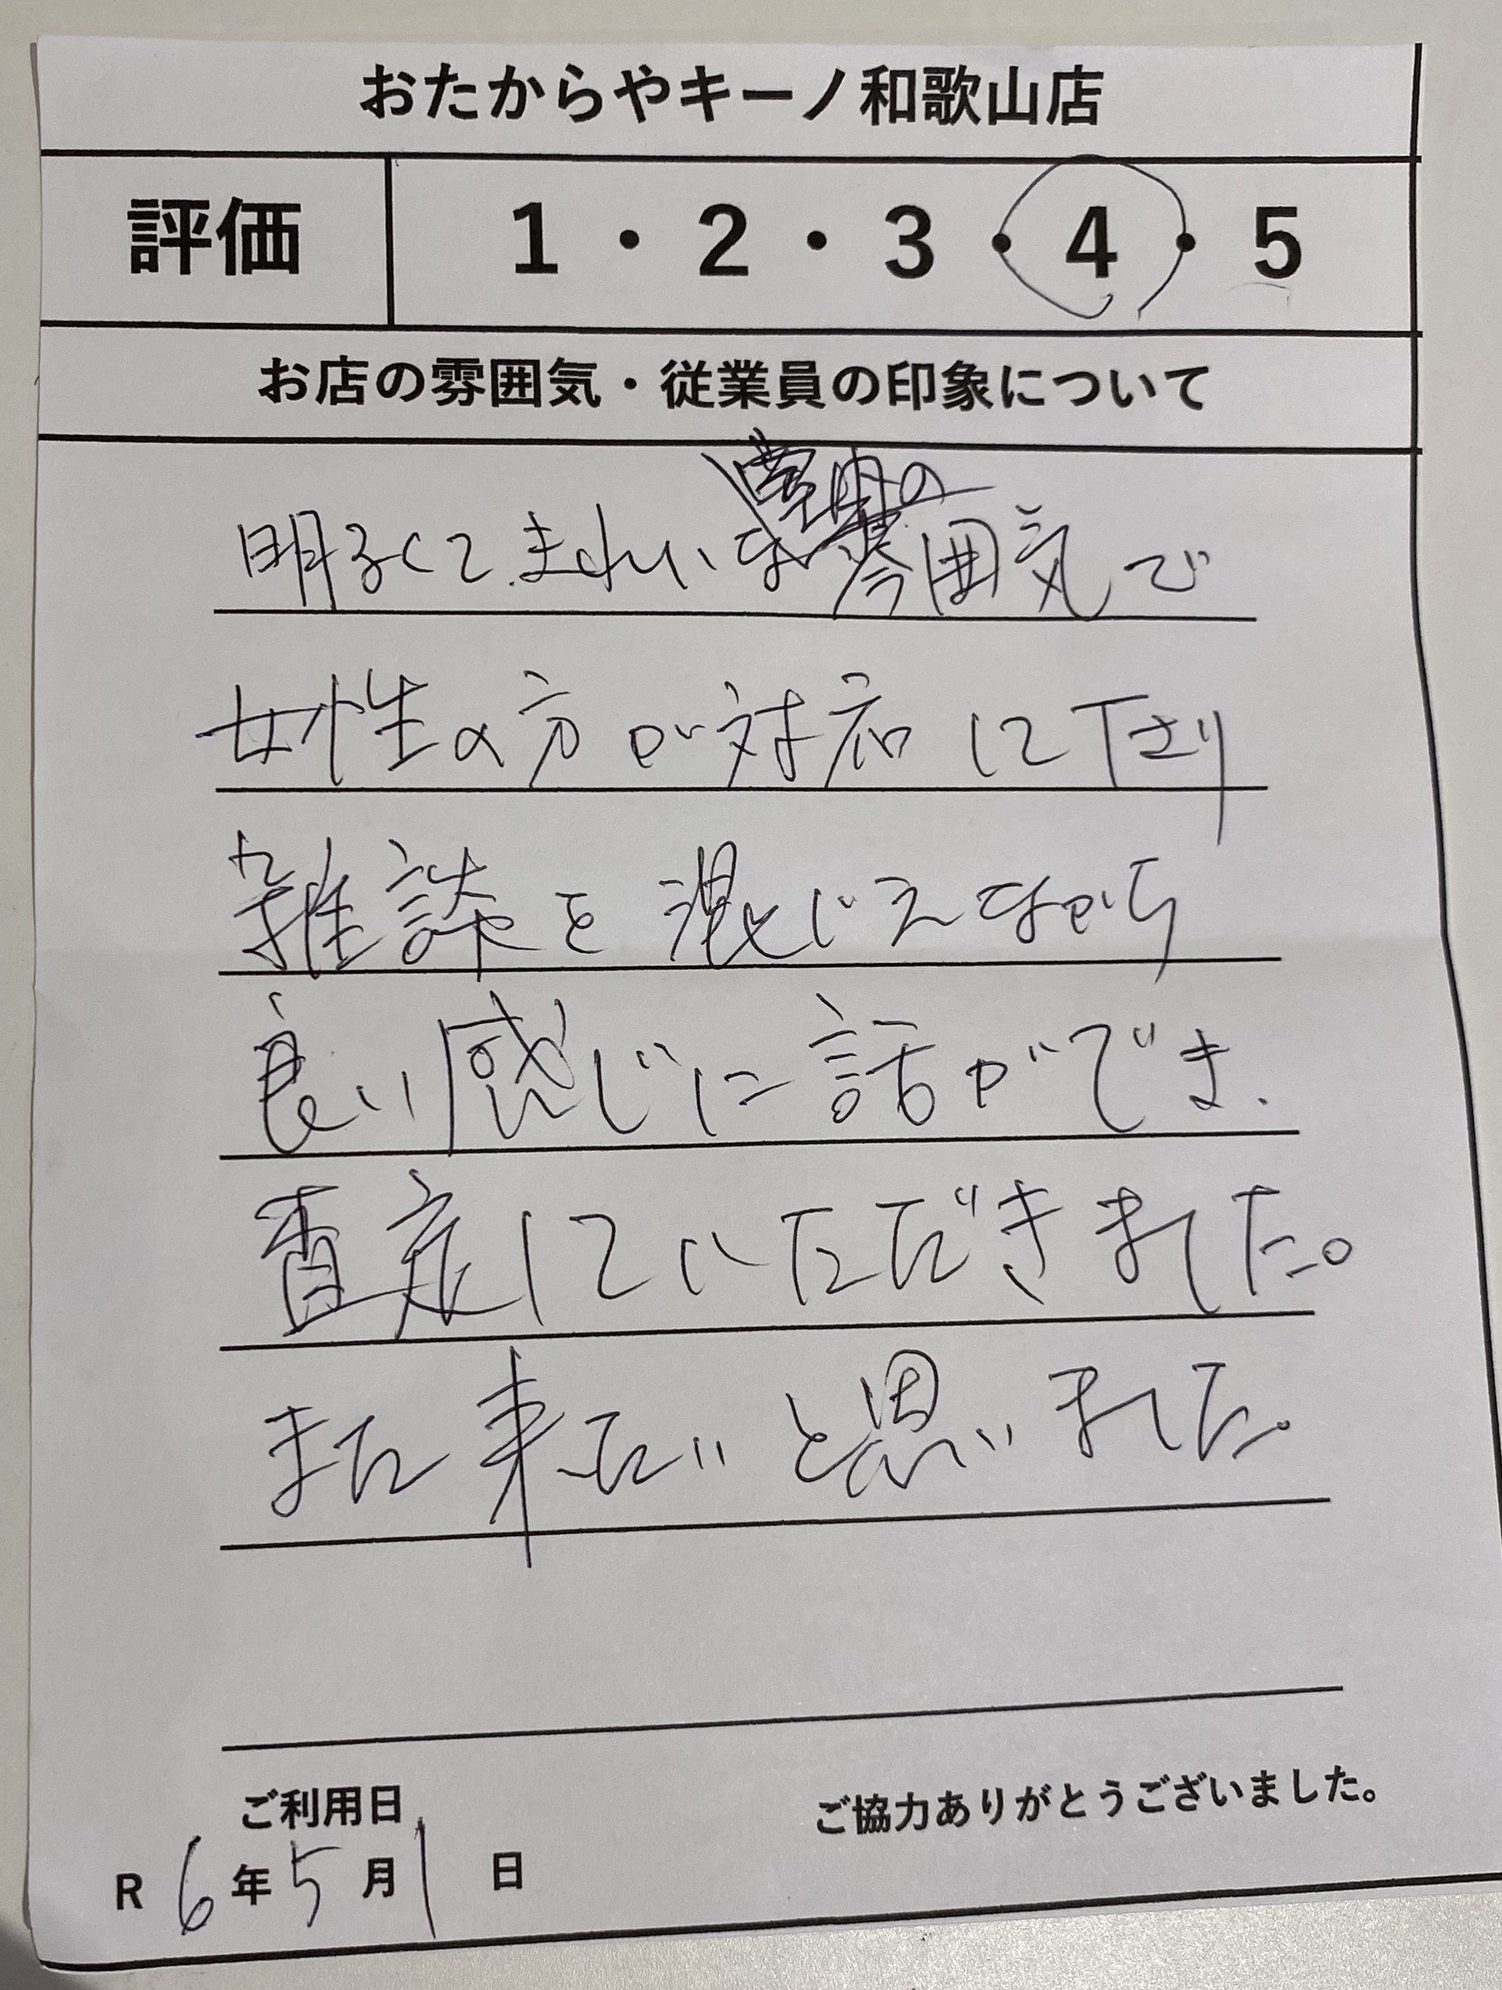 おたからやキーノ和歌山店
評価 1・2・3・4・5
お店の雰囲気・従業員の印象について
明るくて、きれいな雰囲気で
女性の方が対応して下さり
雑談を混じえながら
良い感じに話ができ、
査定していただきました。
また来たいと思いました。
ご利用日
ご協力ありがとうございました。
R 6年 5月 1日